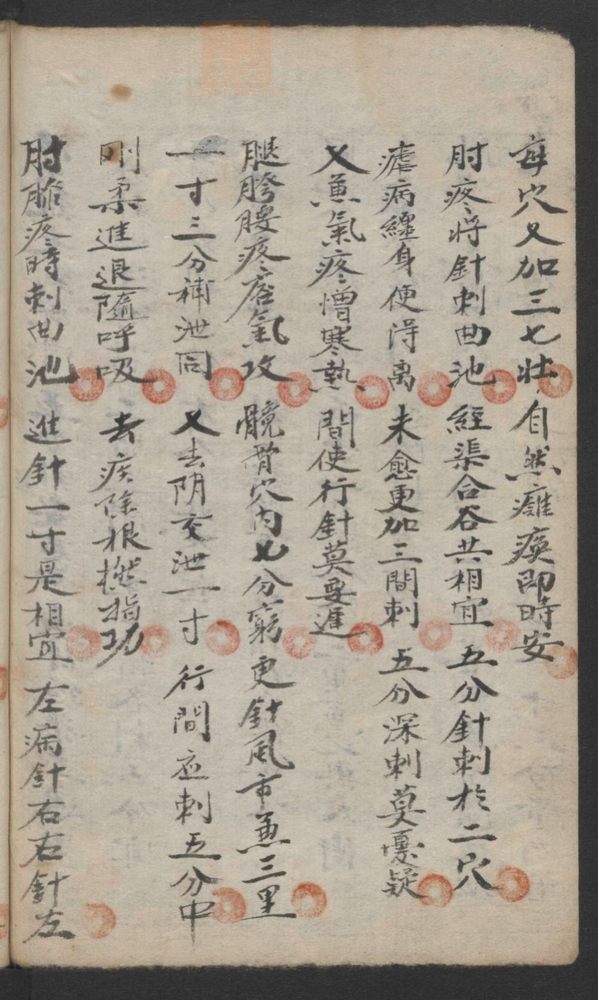 每穴又加三七壯　自然癱瘓即時安
肘疼將針刺曲池　經渠合谷共相宜　五分針刺於二穴
瘧病纏身便得离　未愈更加三間刺　五分深刺莫憂疑
又兼氣疼憎寒熱　間使行針莫要遲
腿胯腰疼痞氣攻　髖骨穴內七分窮　更針風市兼三里
一寸三分補泄同　又去阴交泄一寸　行間应刺五分中
刚柔進退隨呼吸　去疾除根撚指功
肘膝疼時刺曲池　進針一寸是相宜　左病針右右針左